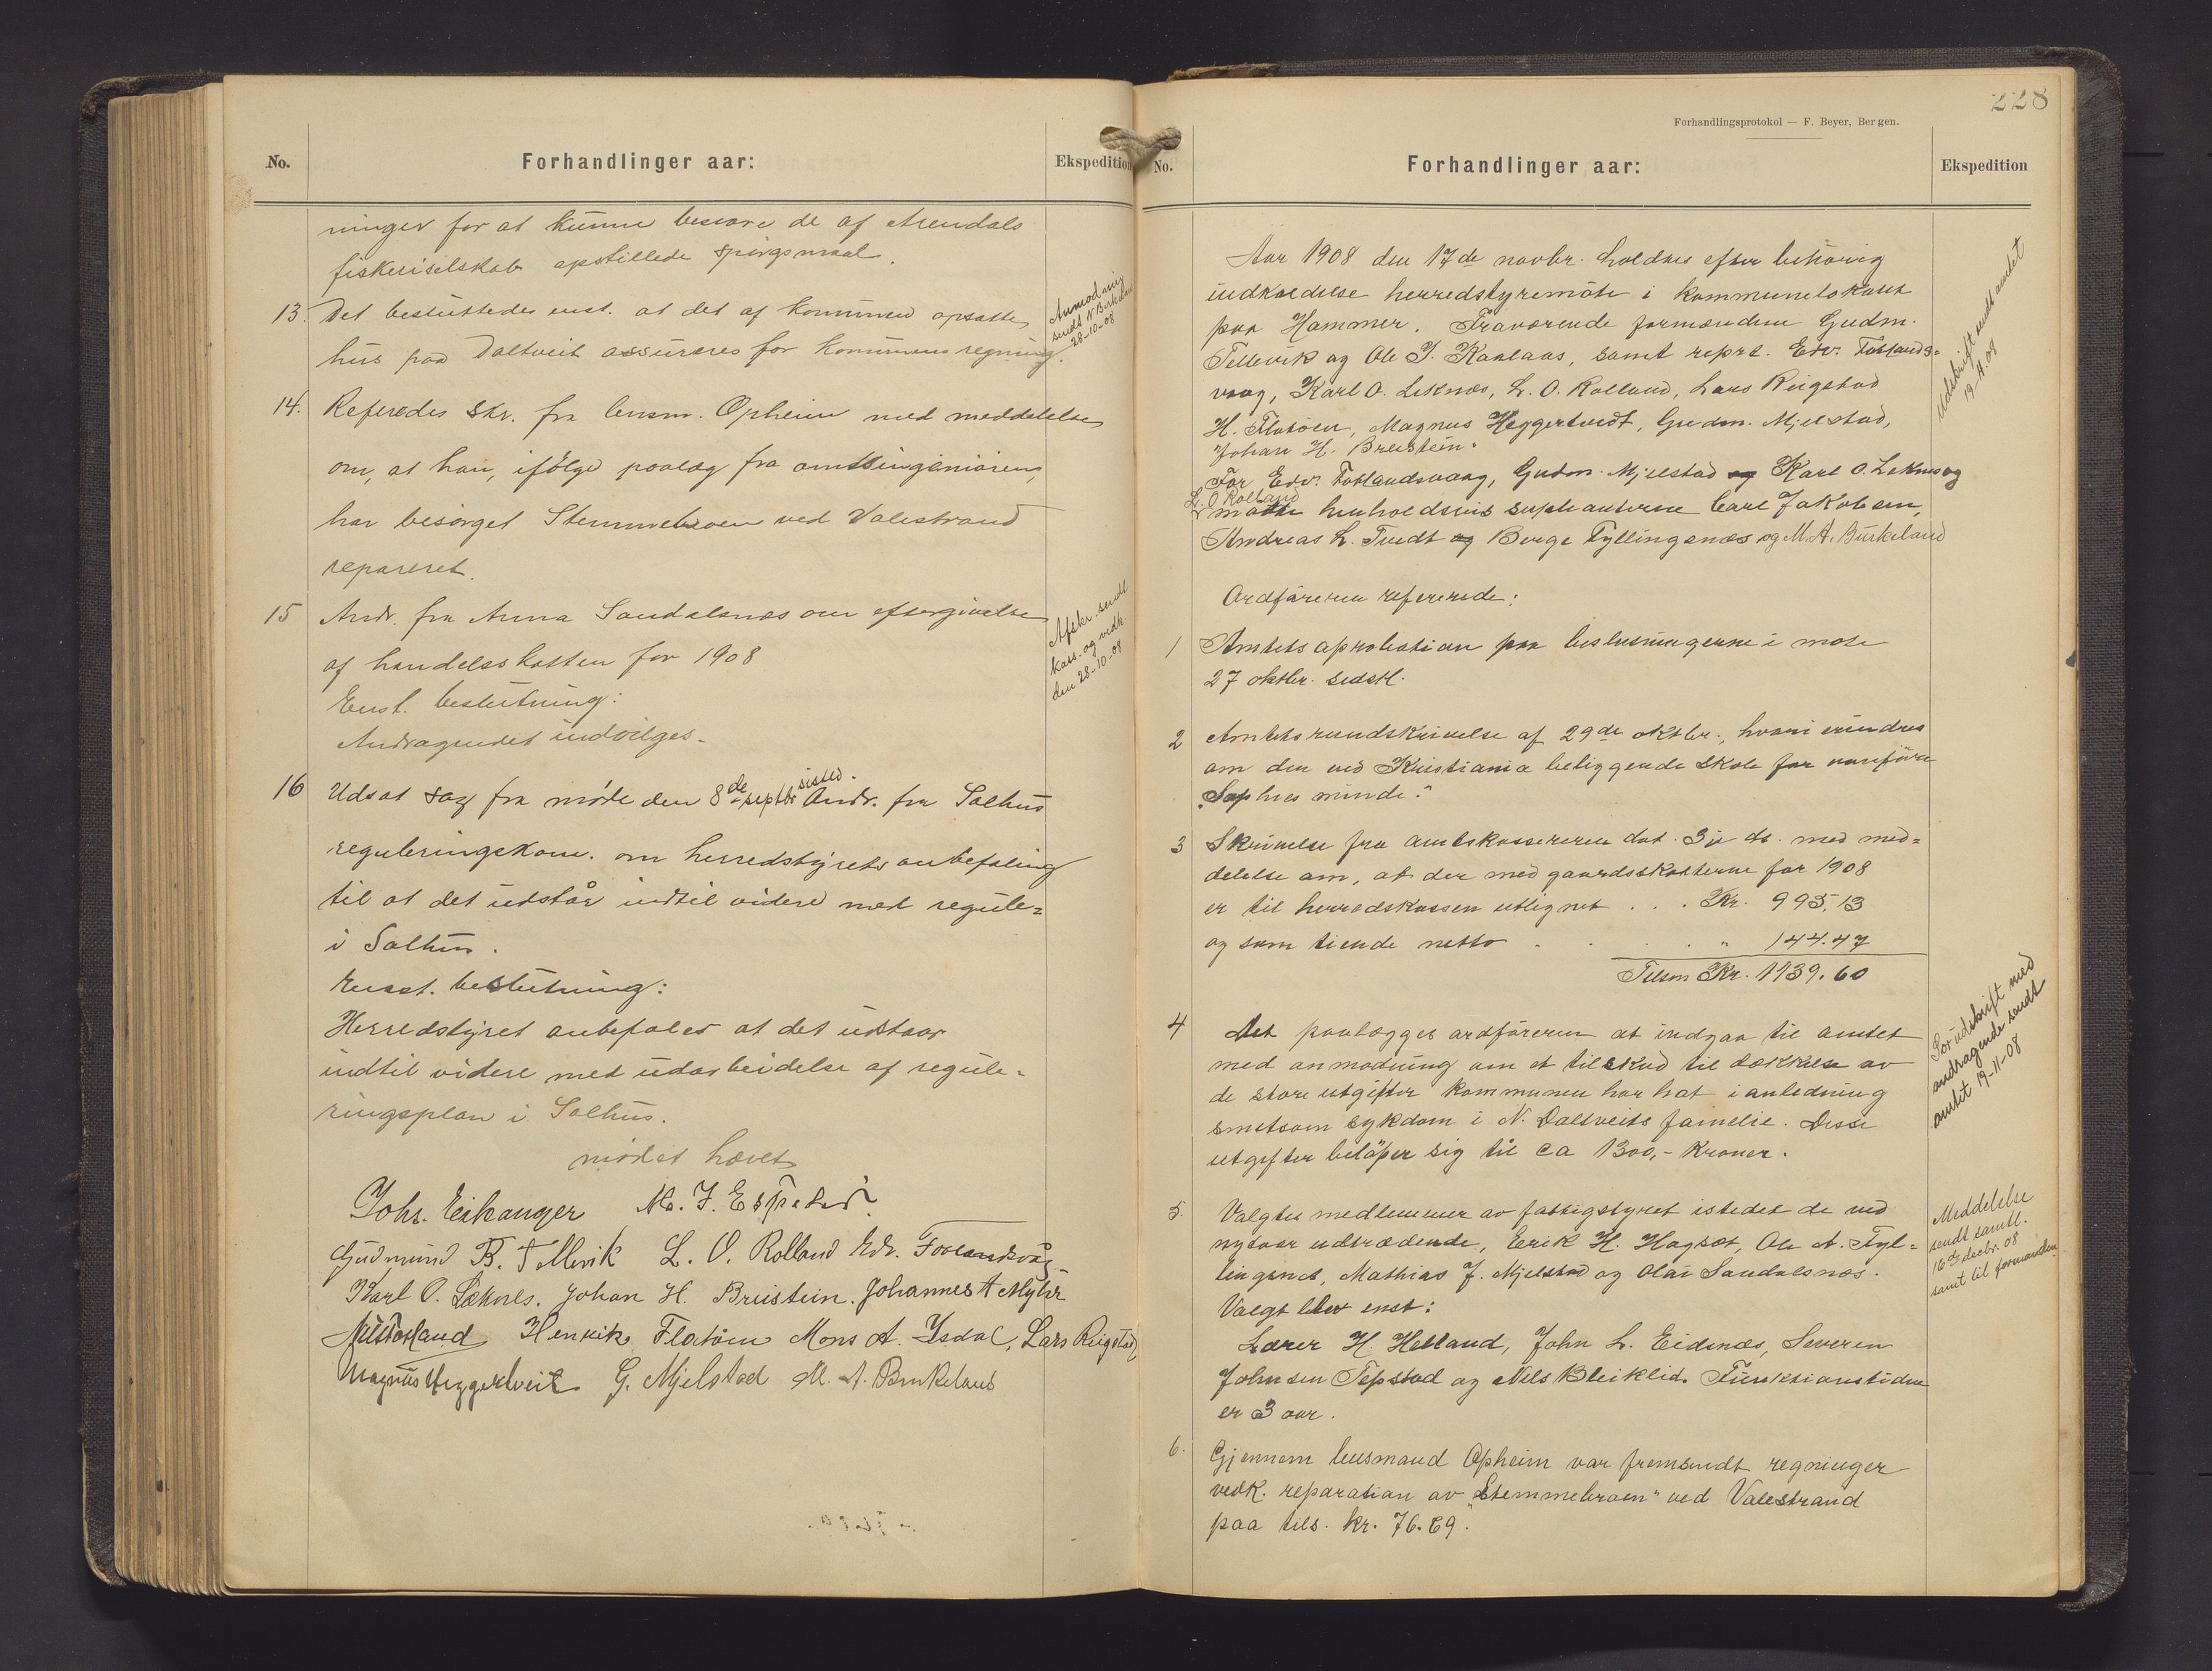 No.
Forhandlinger aar:
Ekspedition
ninger for at kunne besvare de af Arendals
fiskeriselskab opstillede spørgsmaal.
13. Det besluttedes enst. at det af kommunen opsatte
hus paa Daltveit assureres for kommunens regning.
Anmodning
sendt N Birkeland
28-10-08
14. Referedes skr. fra lensm. Opheim med meddelelse
om, at han, ifølge paalæg fra amtsingeniøren,
har besørget Stemmebroen ved Valestrand
repareret.
15 Andr. fra Anna Sandalsnæs om eftergivelse
af handelsskatten for 1908
Enst. beslutning:
Andragendet indvilges.
Afskr. sendt
kass. og vedk.
den 28-10-08
16 Udsat sag fra møde den 8de septbr sistl. Andr. fra Salhus
reguleringskom. om herredstyrets anbefaling
til at det udstår indtil videre med regule-
i Salhus.
Enst. beslutning:
Herredstyret anbefaler at det udstaar
indtil videre med udarbeidelse af regule-
ringsplan i Salhus.
mødet hævet
Johs. Eikanger M. J. Espetvedt
Gudmund B. Tellevik L. O. Rolland Edv. Fotlandsvåg
Karl O. Leknes. Johan H. Breistein. Johannes A Myhr
Henrik Flatøen Mons A. Isdal, Lars Reigstad,
Magnus Heggertveit G. Mjelstad M. A. Burkeland
228
Forhandlingsprotokol — F. Beyer, Bergen.
No.
Forhandlinger aar:
Ekspedition
Aar 1908 den 17de novbr. holdtes efter behørig
indkaldelse herredstyremøte i kommunelokalet
paa Hammer. Fraværende formændene Gudm.
Tellevik og Ole J. Kaalaas, samt repræ. Edv. Fotlands-
vaag, Karl O. Leknæs, L. O. Rolland, Lars Reigstad
H. Flatøen, Magnus Heggertveit, Gudm. Mjelstad,
Johan H. Breistein.
Udskrift sendt amtet
19-11-08
For Edv. Fotlandsvaag, Gudm. Mjelstad og Karl O. Leknes og
L. O Rolland
møtte henholdsvis suplanterne Carl Jakobsen,
Andreas L. Tvedt og Børge Fyllingsnæs og M. A. Burkeland
Ordføreren refererede:
1 Amtets aprobation paa beslutningerne i møte
27 oktbr. sidstl.
2 Amtets rundskrivelse af 29de oktbr., hvori erindres
om den ved Kristiania beliggende skole for vanføre
„Sophies minde."
3 Skrivelse fra amtskassereren dat. 3je ds. med med-
delelse om, at der med gaardsskatterne for 1908
er til herredskassen utlignet . . . Kr. 995,13
og som tiende netto . . . " 144.47
Tilsm Kr. 1139.60
4 Det paalægges ordføreren at indgaa til amtet
med anmodning om et tilskud til dækkelse av
de store utgifter kommunen har hat i anledning
smetsom sykdom i N. Daltveits familie. Disse
utgifter beløper sig til ca 1300,- kroner.
Sær udskrift med
andragende sendt
amtet 19-11-08
5. Valgtes medlemmer av fattigstyret istedet de ved
nytaar udtrædende, Erik H. Hagsæt, Ole A. Fyl-
lingsnes, Mathias J. Mjelstad og Olai Sandalsnæs.
Valgt blev enst:
Lærer H. Helland, John L. Eidsnæs, Severin
Johnsen Tepstad og Nils Bleiklid. Funktionstiden
er 3 aar.
Meddelelse
sendt samtl.
16de decbr. 08
samt til formanden
6. Gjennem lensmand Opheim var fremsendt regninger
vedk. reparation av „Stemmebroen" ved Valestrand
paa tils. kr. 76.69.